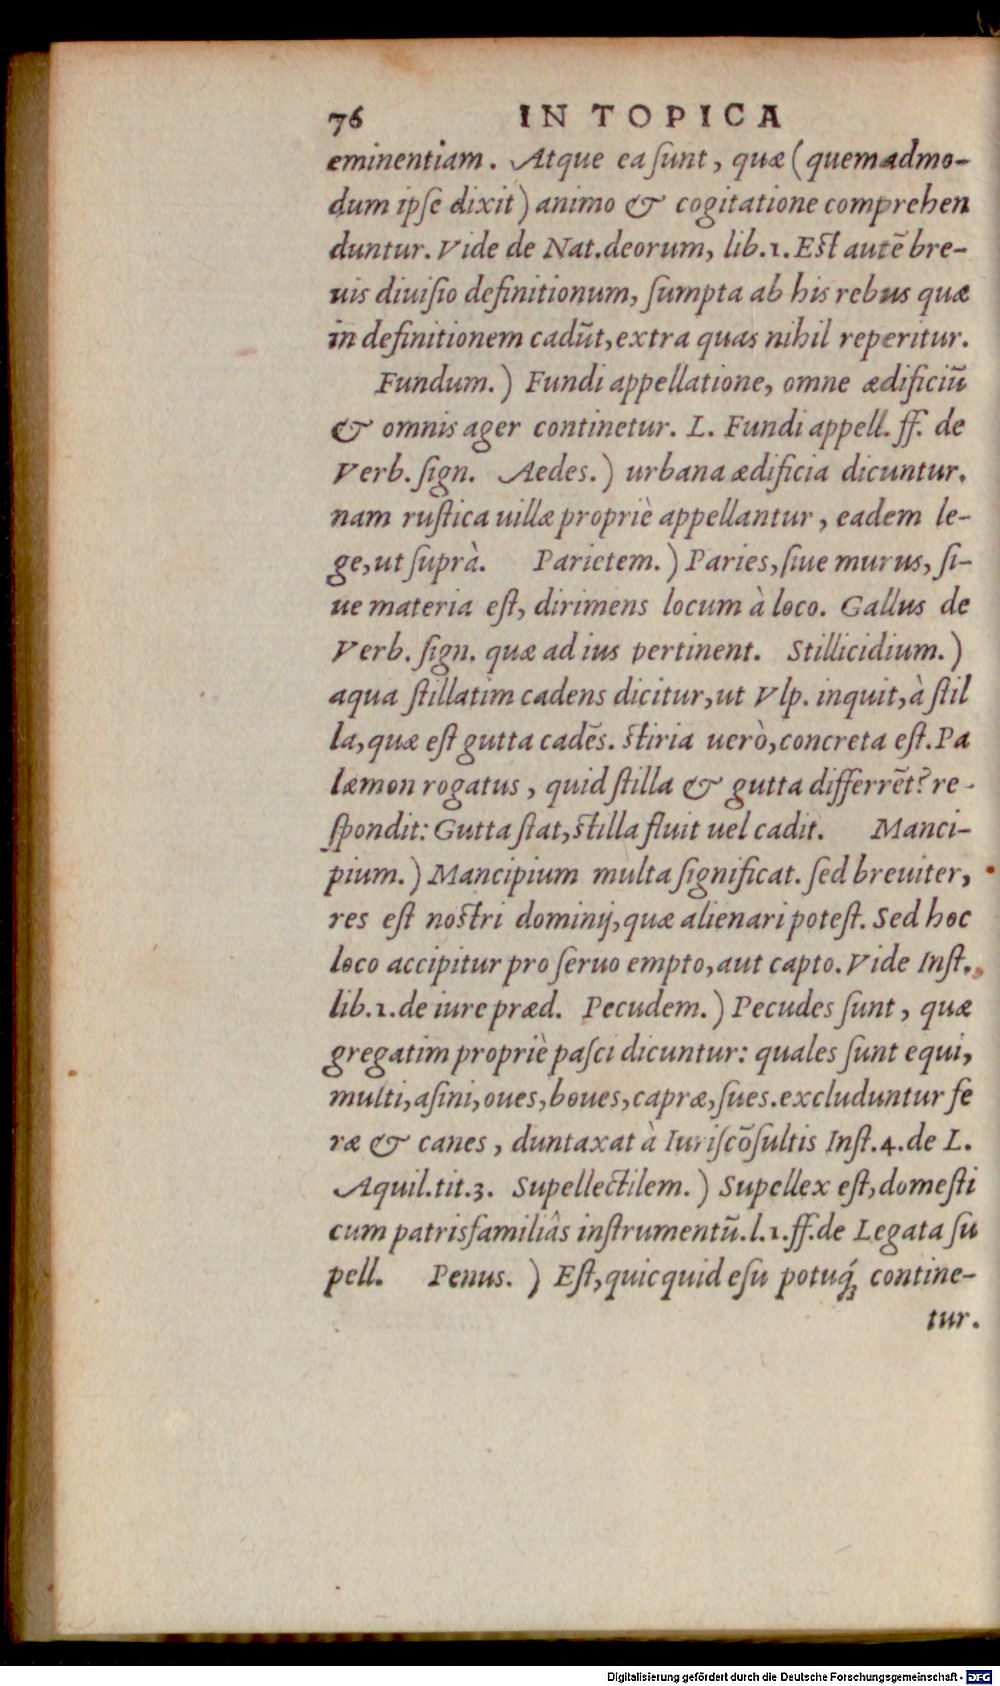 76 IN TOPICA
eminentiam. Atque ea ſunt, quæ (quemadmo-
dum ipſe dixit) animo & cogitatione comprehen
duntur. Vide de Nat. deorum, lib.1. Eſt autē bre-
uis diuiſio definitionum, ſumpta ab his rebus quæ
in definitionem cadūt, extra quas nihil reperitur.
Fundum.) Fundi appellatione, omne ædificiū
& omnis ager continetur. L. Fundi appell. ff. de
Verb. ſign. Aedes.) urbana ædificia dicuntur.
nam ruſtica uillæ propriè appellantur, eadem le-
ge, ut ſuprà. Parietem.) Paries, ſiue murus, ſi-
ue materia eſt, dirimens locum à loco. Gallus de
Verb. ſign. quæ ad ius pertinent. Stillicidium.)
aqua ſtillatim cadens dicitur, ut Vlp. inquit, à ſtil
la, quæ eſt gutta cadēs. ſtiria uerò, concreta eſt. Pa
læmon rogatus, quid ſtilla & gutta differrēt? re-
ſpondit: Gutta ſtat, ſtilla fluit uel cadit. Manci-
pium.) Mancipium multa ſignificat. ſed breuiter,
res eſt noſtri dominij, quæ alienari poteſt. Sed hoc
loco accipitur pro ſeruo empto, aut capto. Vide Inſt.
lib.1. de iure præd. Pecudem.) Pecudes ſunt, quæ
gregatim propriè paſci dicuntur: quales ſunt equi,
multi, aſini, oues, boues, capræ, ſues. excluduntur fe
ræ & canes, duntaxat à Iuriſcōſultis Inſt.4. de L.
Aquil. tit.3. Supellectilem.) Supellex eſt, domeſti
cum patrisfamiliâs inſtrumentū. l.1. ff. de Legata ſu
pell. Penus.) Eſt, quicquid eſu potuq́ꝫ contine-
tur.
Digitalisierung gefördert durch die Deutsche Forschungsgemeinschaft - DFG